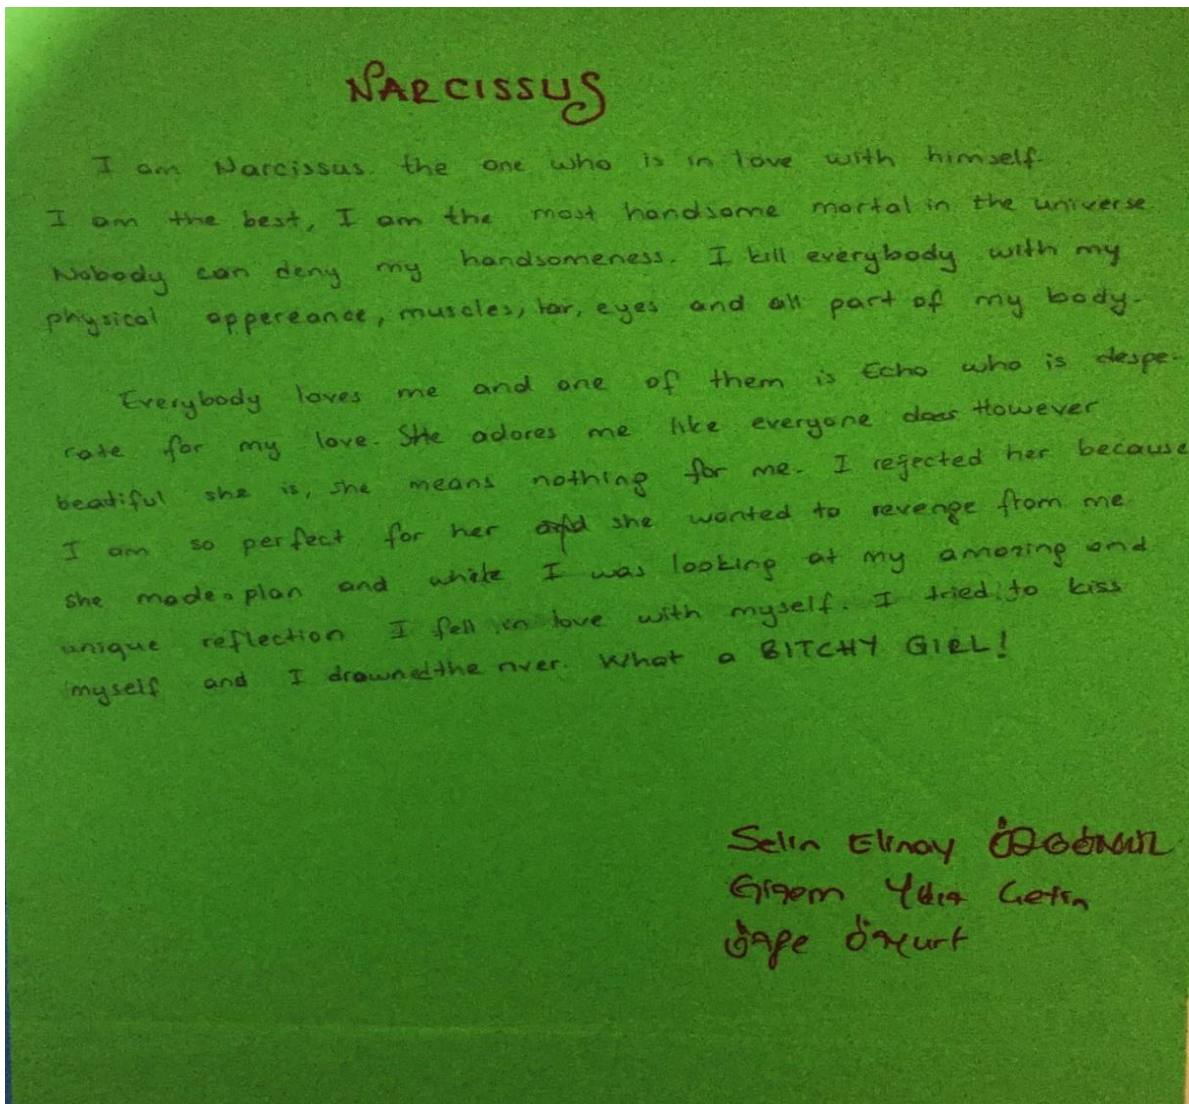 NARCISSUS
I am Narcissus. the one who is in love with himself.
I am the best, I am the most handsome mortal in the universe.
Nobody can deny my handsomeness. I kill everybody with my
physical appereance, muscles, har, eyes and all part of my body.
Everybody loves me and one of them is Echo who is despe-
rate for my love. She adores me like everyone does However
beatiful she is, she means nothing for me. I rejected her because
I am so perfect for her and she wanted to revenge from me
she made a plan and while I was looking at my amazing and
unique reflection I fell in love with myself. I tried to kiss
myself and I drowned the river. What a BITCHY GIRL!
Selin Elinay
Gizem Yıldız Çetin
Özge Özyurt